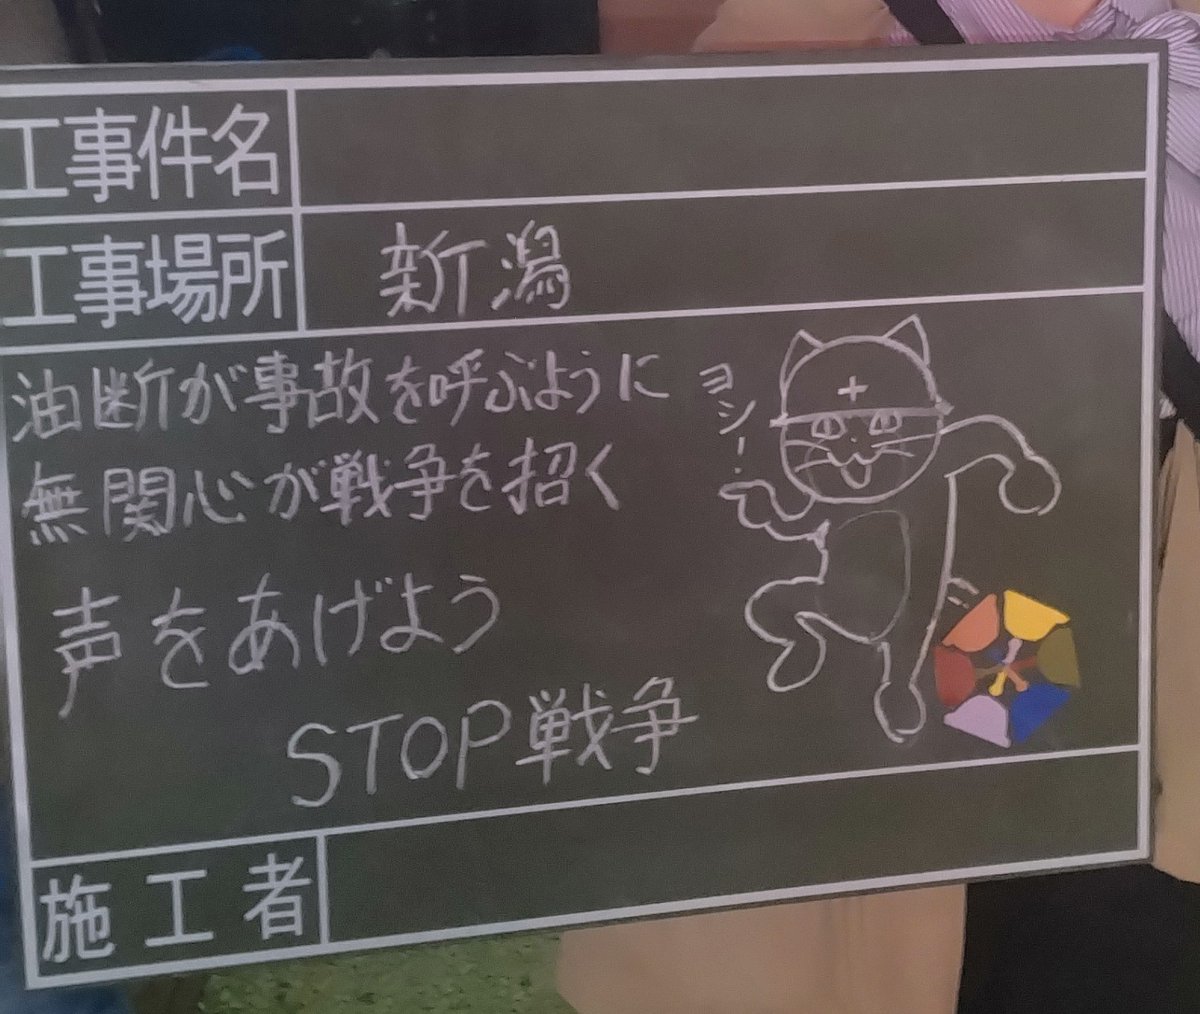 工事件名
工事場所 新潟
油断が事故を呼ぶように
無関心が戦争を招く
ヨシ！
声をあげよう
STOP戦争
施工者